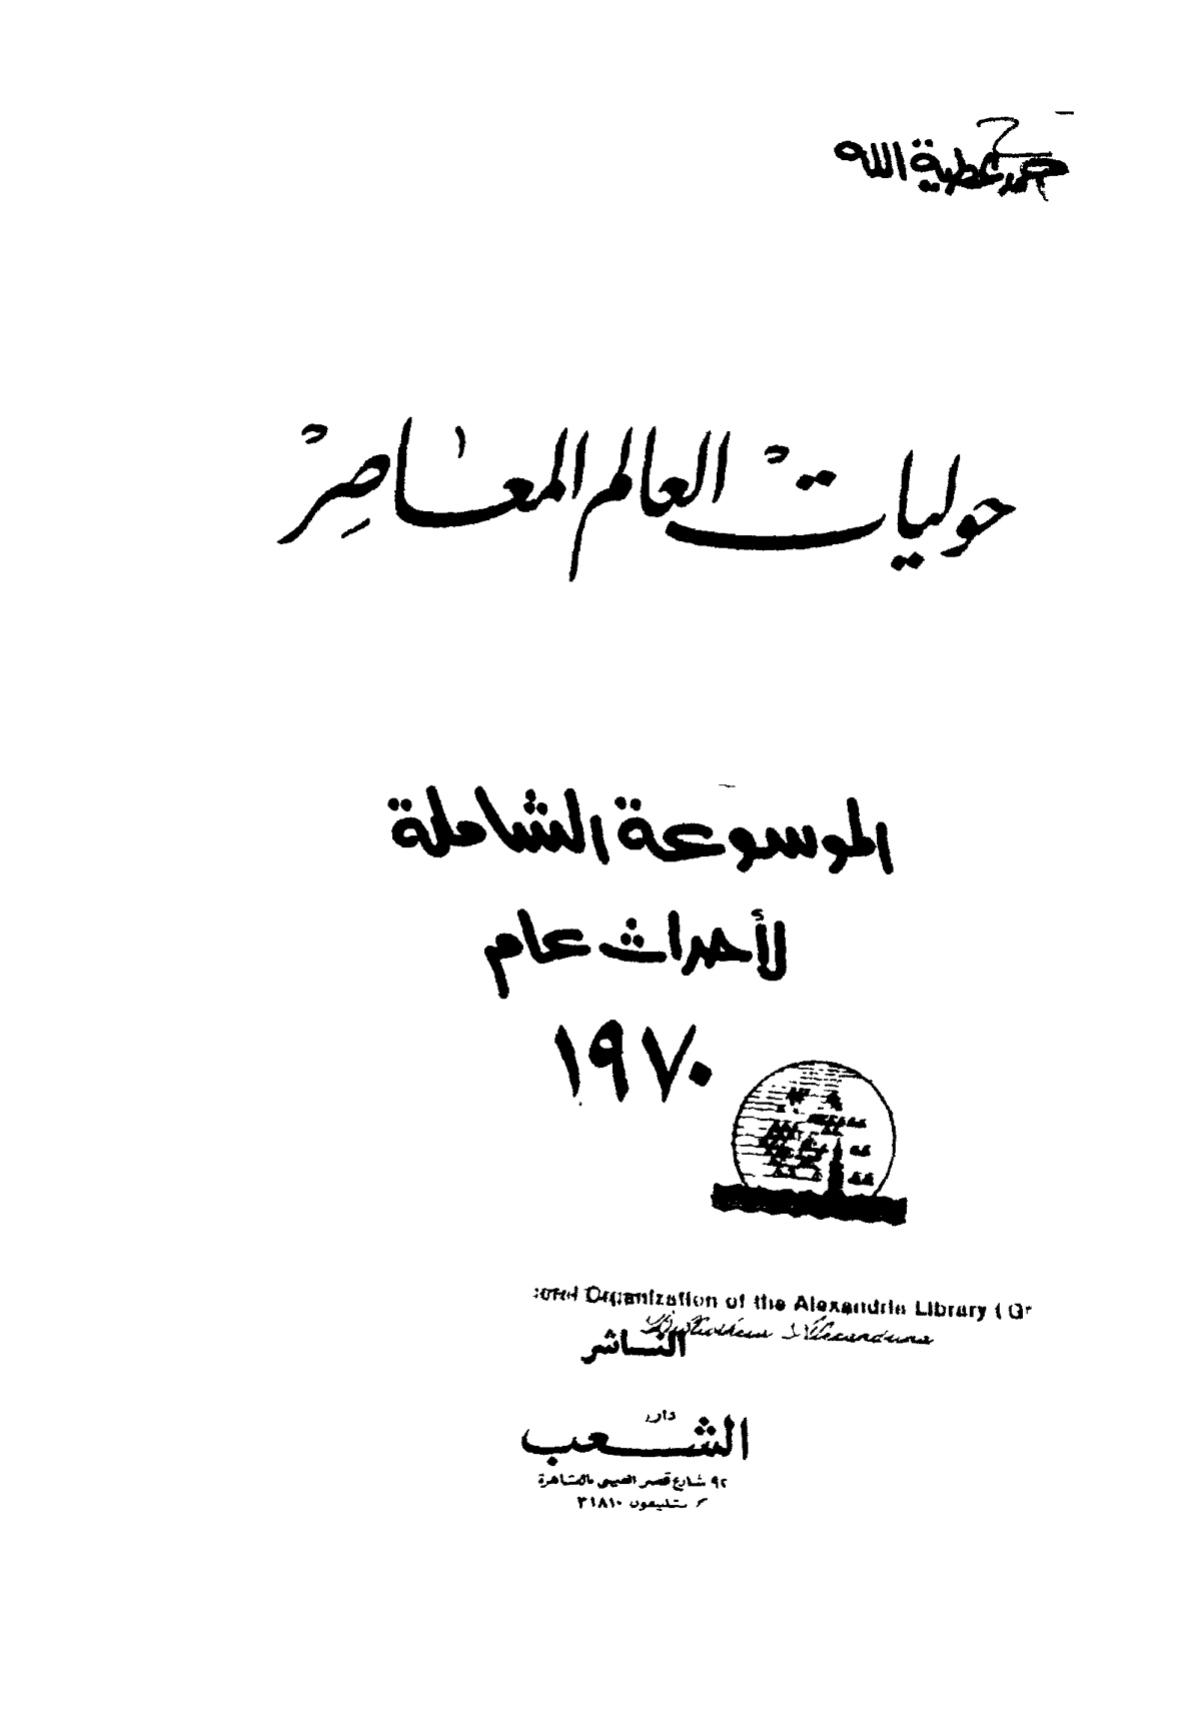 أحمد عطية الله
حوليات العالم المعاصر
الموسوعة الشاملة
لأحداث عام
١٩٧٠
Organization of the Alexandria Library ( Gr
Bibliotheca Alexandrina
الناشر
دار
الشعب
٩٢ شارع قصر العينى بالقاهرة
تليفون ٣١٨١٠